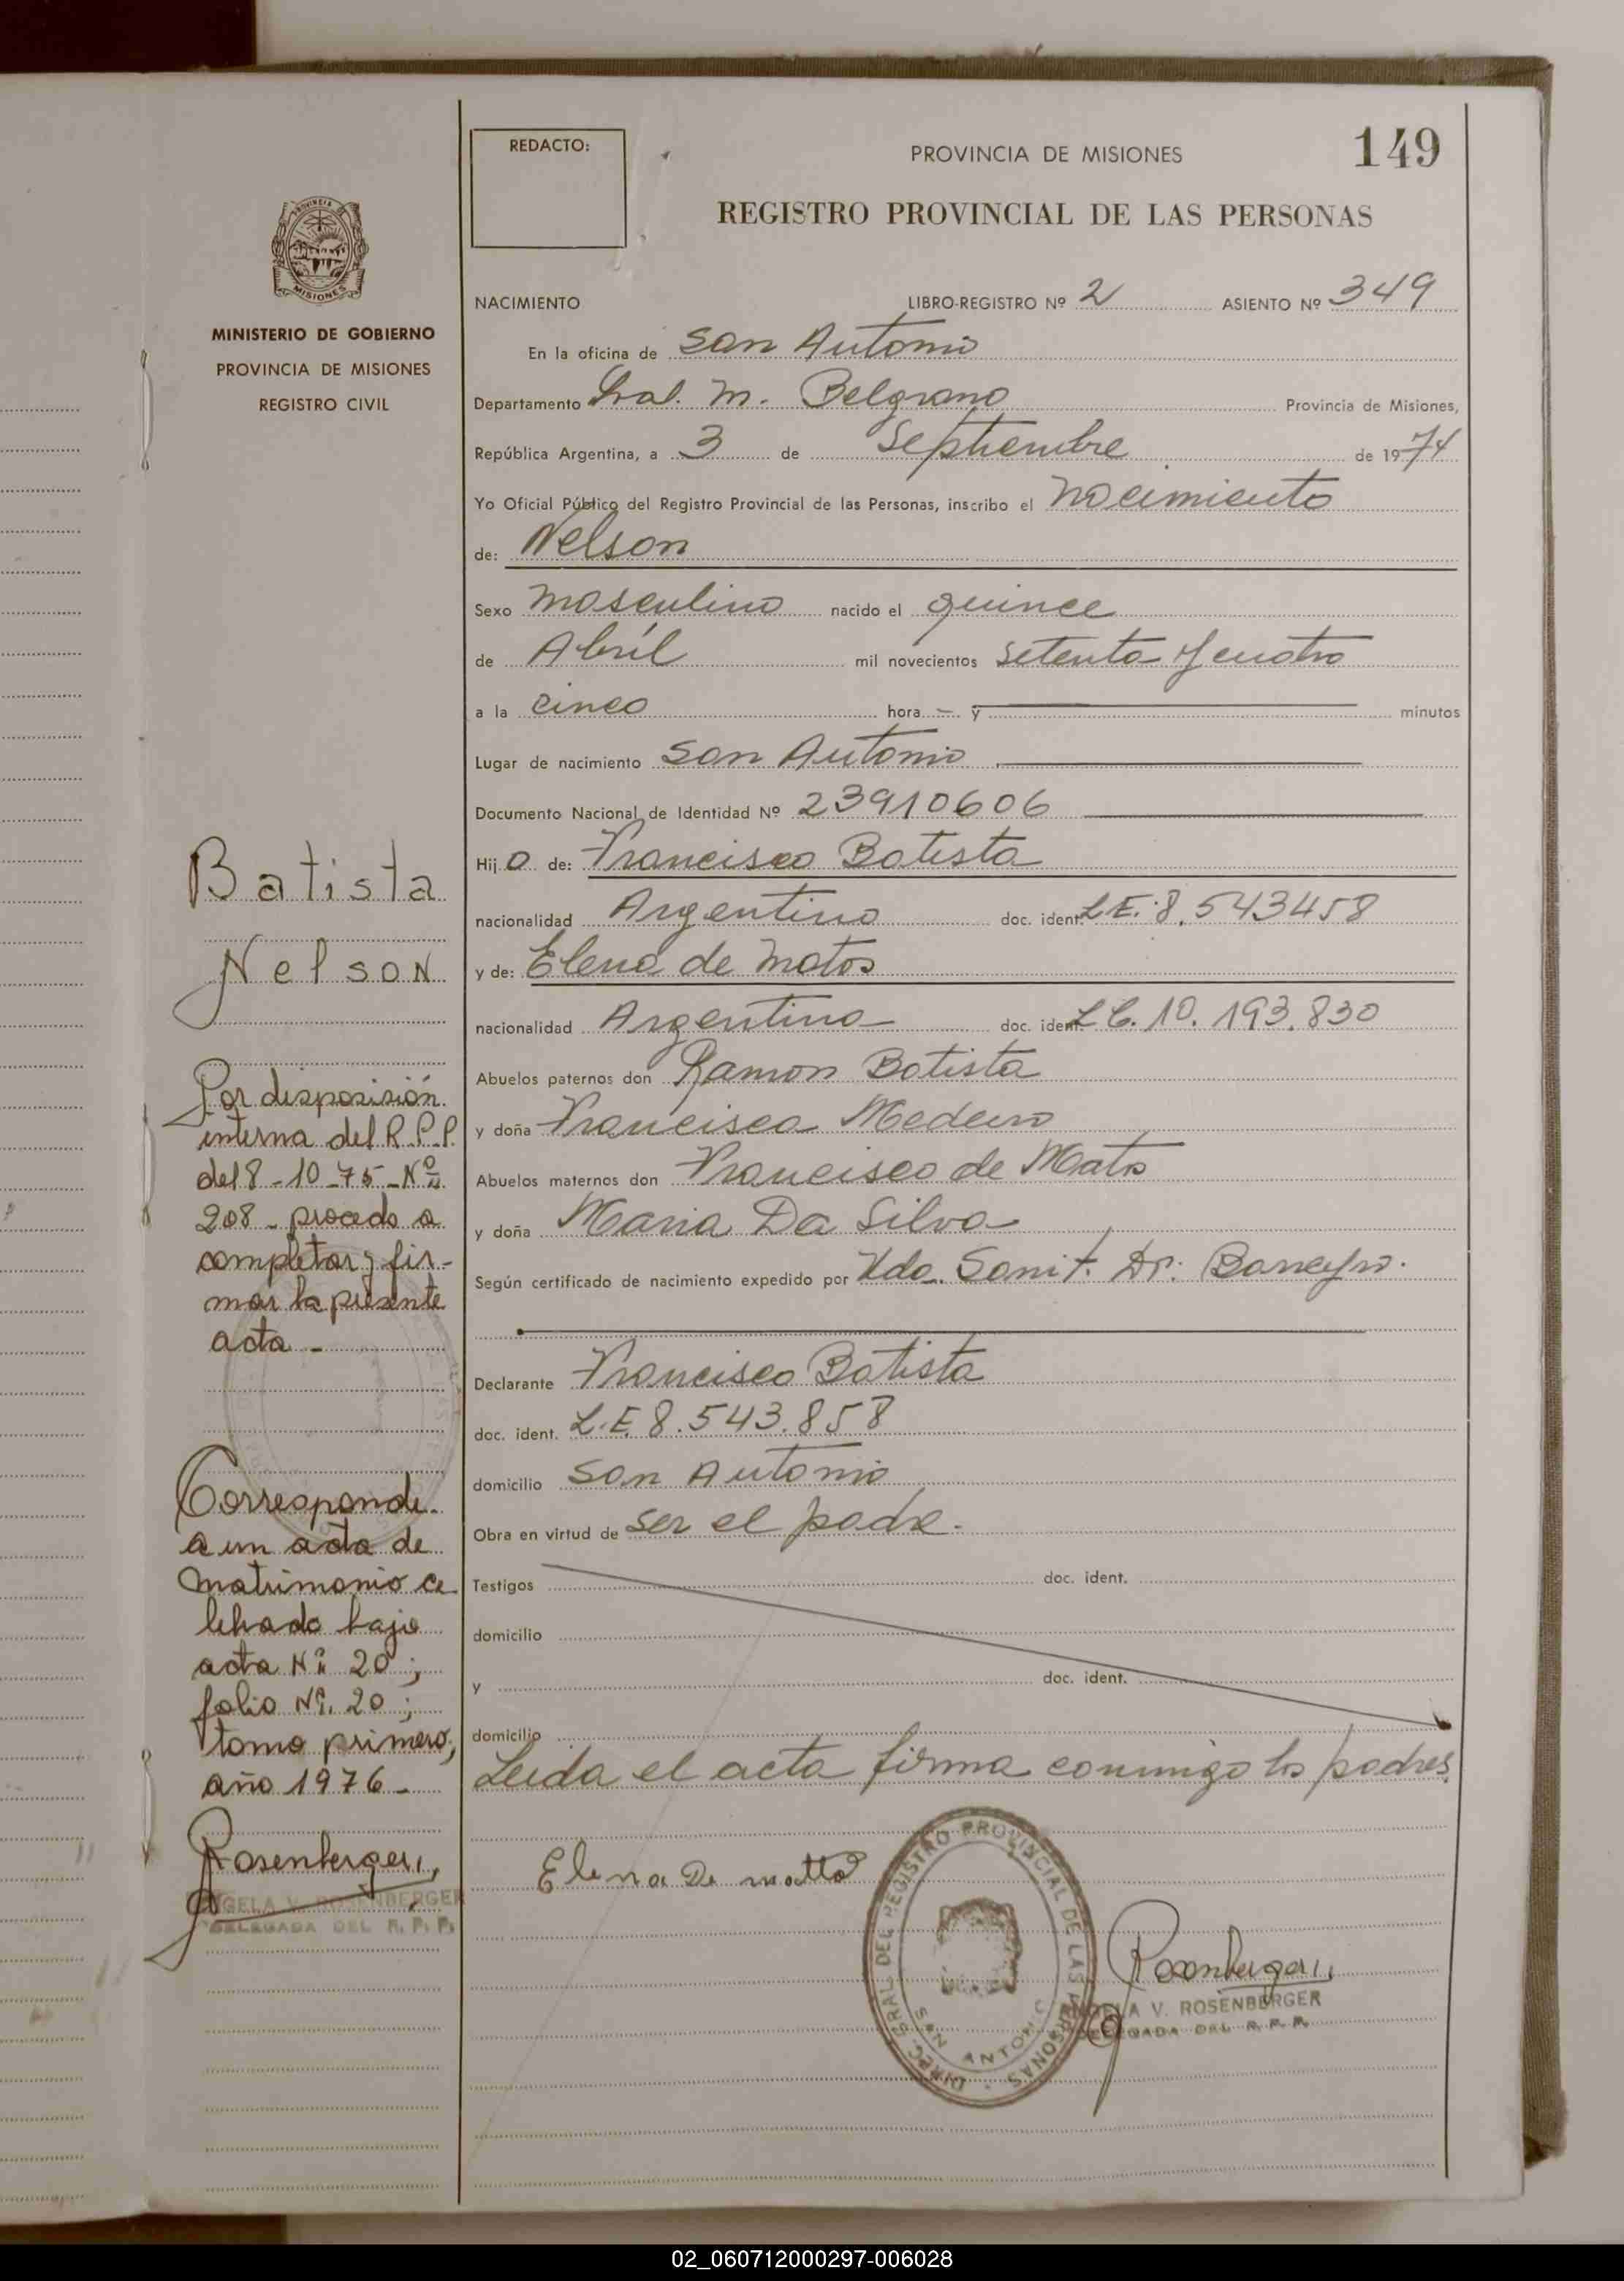 149
REDACTO:
PROVINCIA DE MISIONES
REGISTRO PROVINCIAL DE LAS PERSONAS
NACIMIENTO LIBRO-REGISTRO Nº 2 ASIENTO Nº 349
En la oficina de San Antonio
Departamento Gral. M. Belgrano Provincia de Misiones,
República Argentina, a 3 de Septiembre de 1974
Yo Oficial Público del Registro Provincial de las Personas, inscribo el nacimiento
de: Nelson
Sexo masculino nacido el quince
de Abríl mil novecientos setenta y cuatro
a la cinco hora — y minutos
Lugar de nacimiento San Antonio
Documento Nacional de Identidad Nº 23910606
Hij o de: Francisco Batista
nacionalidad Argentino doc. ident. L.E. 8.543458
y de: Elena de Matos
nacionalidad Argentina doc. ident. L.C. 10.193.830
Abuelos paternos don Ramon Batista
y doña Francisca Medeiro
Abuelos maternos don Francisco de Mato
y doña Maria Da Silva
Según certificado de nacimiento expedido por Sanit. Dr.
Declarante Francisco Batista
doc. ident. L.E. 8.543.858
domicilio San Antonio
Obra en virtud de ser el padre.
Testigos doc. ident.
domicilio
y doc. ident.
domicilio
Leida el acta firma conmigo los padres
Elena De matto
DIREC. GRAL DEL REGISTRO PROVINCIAL DE LAS PERSONAS
SAN ANTONIO
Rosenberger
ANGELA V. ROSENBERGER
DELEGADA DEL R. P. P.
PROVINCIA DE
MISIONES
MINISTERIO DE GOBIERNO
PROVINCIA DE MISIONES
REGISTRO CIVIL
Batista
Nelson
Por disposición
interna del R.P.P.
del 8-10-75-Nº
208- procedo a
completar y fir-
mar la presente
acta -
Corresponde
a un acta de
matrimonio ce
lebrado bajo
acta Nº 20;
folio Nº 20;
tomo primero,
año 1976-
Rosenberger
ANGELA V. ROSENBERGER
DELEGADA DEL R. P. P.
02_060712000297-006028